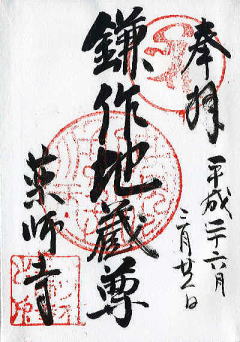 奉拝
平成二十六月
三月廿一日
鎌作地蔵尊
薬師寺